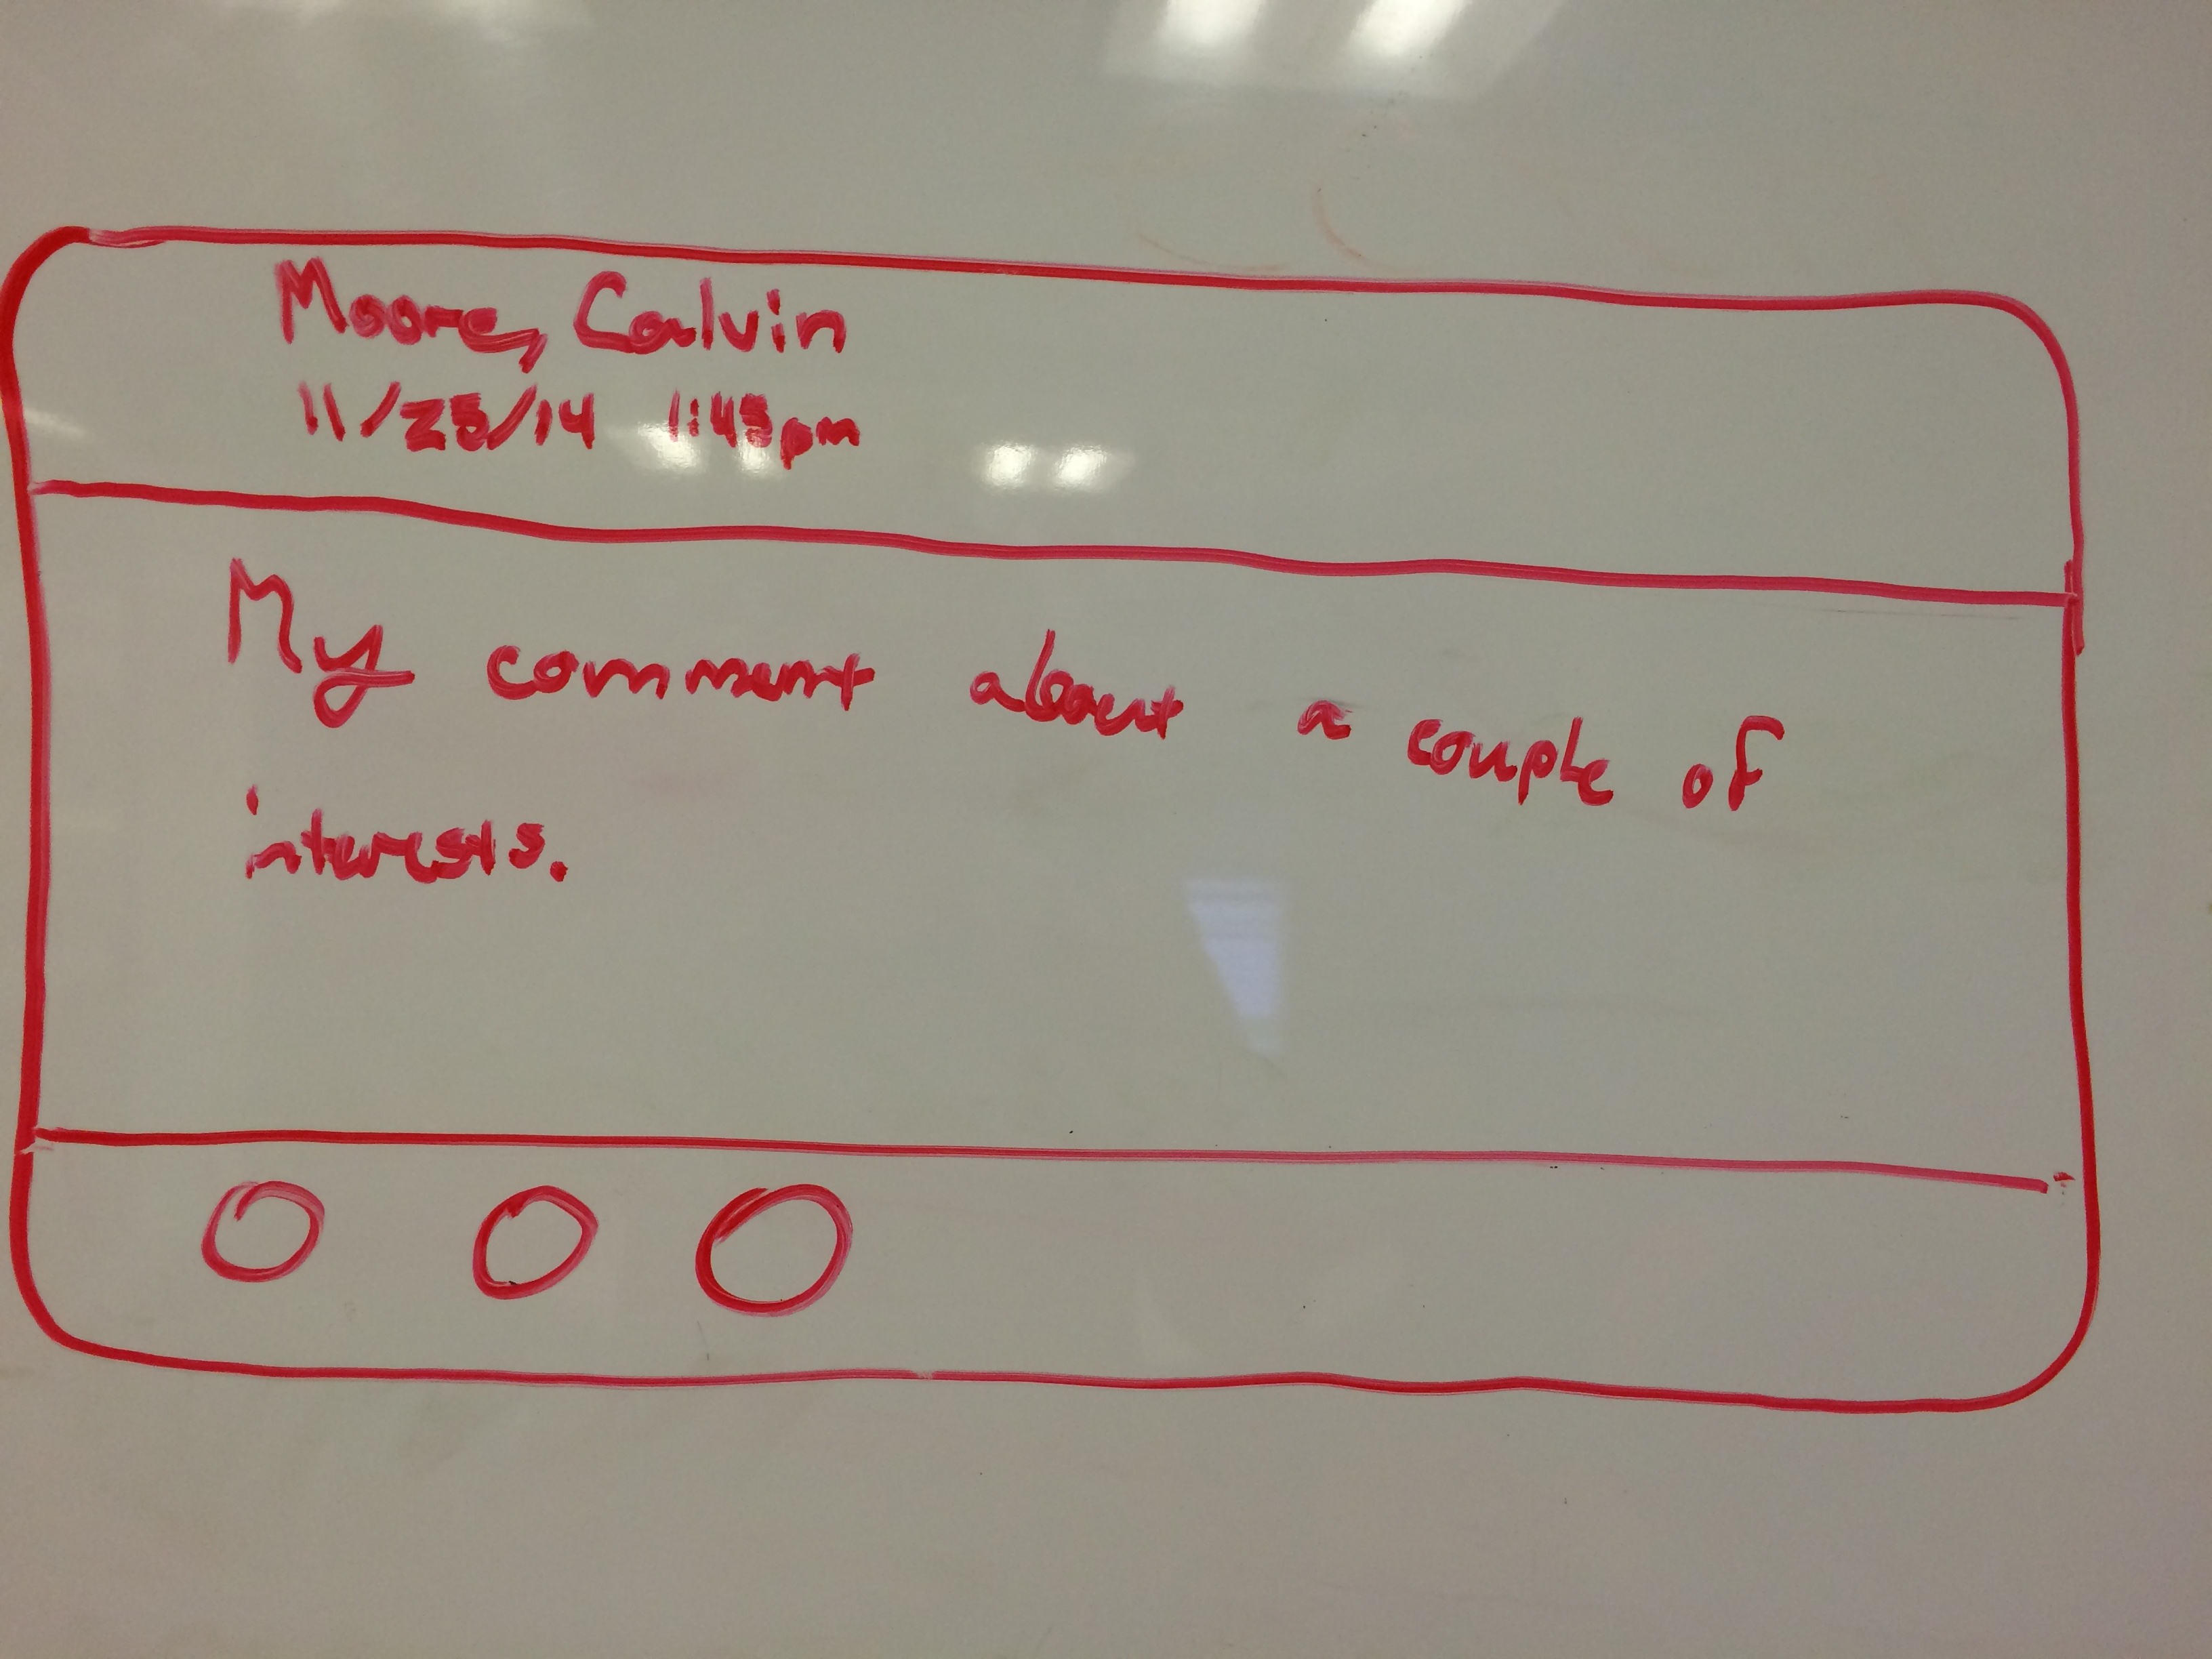 Moore, Calvin
11/25/14 1:45pm
My comment about a couple of
interests.